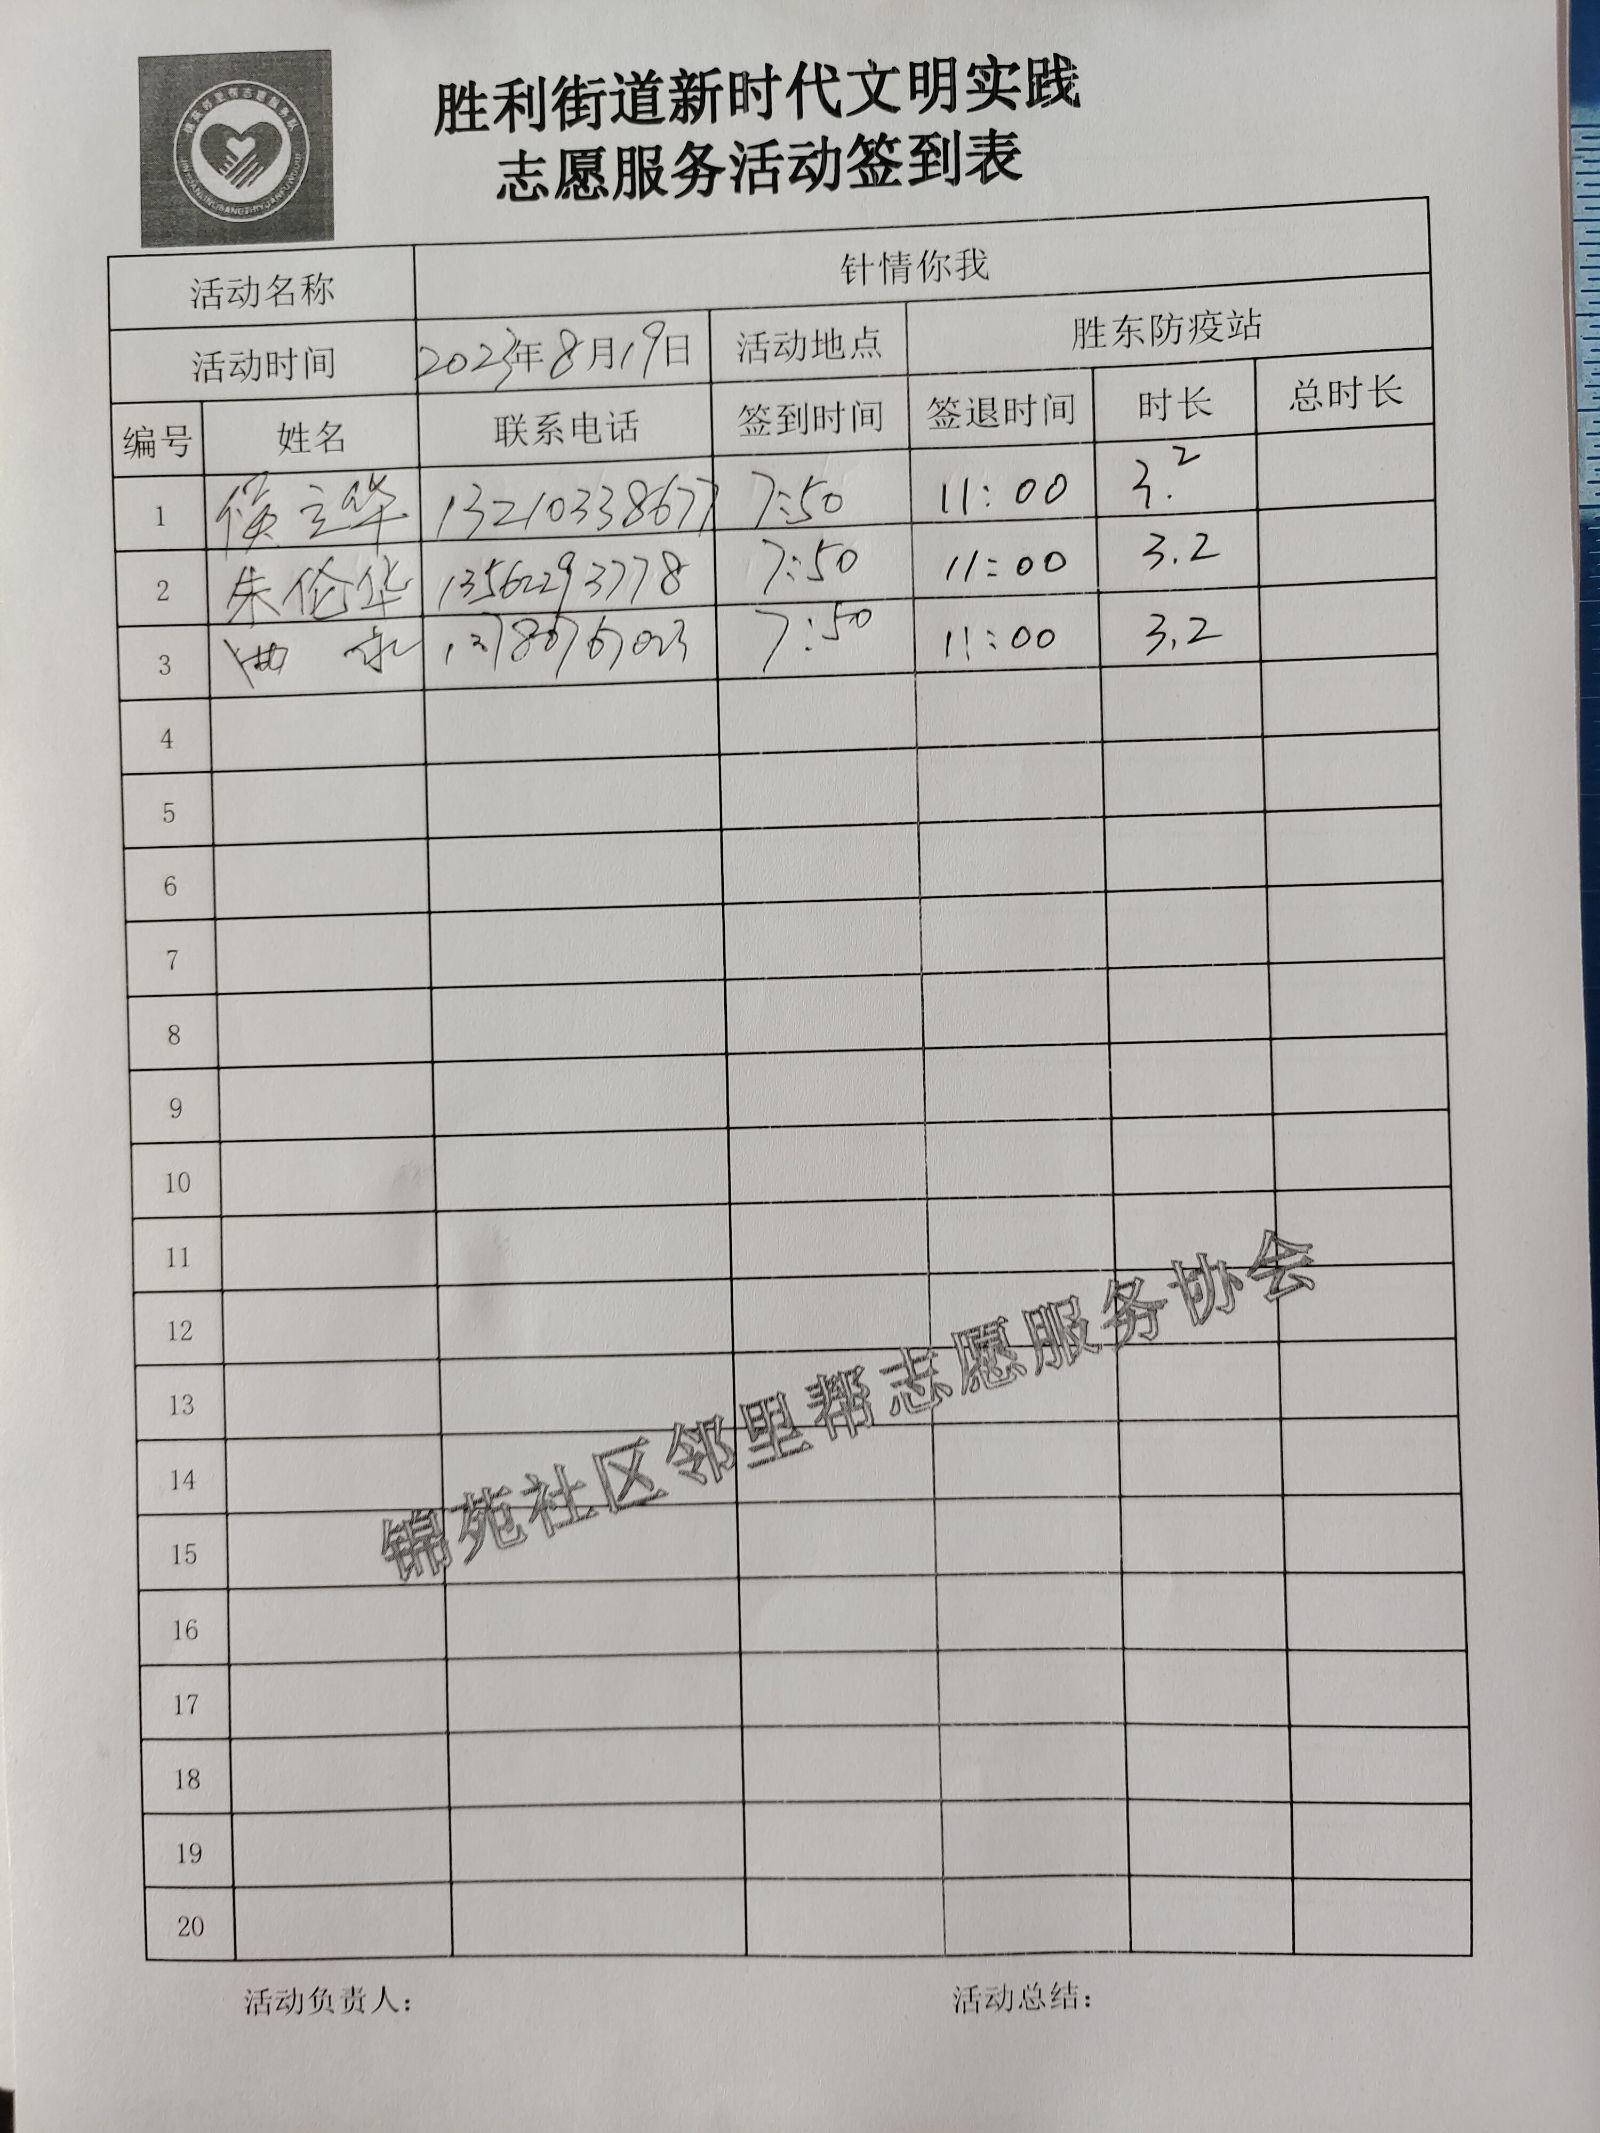 胜利街道新时代文明实践
志愿服务活动签到表
活动名称 针情你我
活动时间 2023年8月19日 活动地点 胜东防疫站
编号 姓名 联系电话 签到时间 签退时间 时长 总时长
1 侯立华 13210338677 7:50 11:00 3.2
2 朱伦华 13562293778 7:50 11:00 3.2
3 13780767023 7:50 11:00 3.2
4
5
6
7
8
9
10
11
12
13
14
15
16
17
18
19
20
锦苑社区邻里帮志愿服务协会
活动负责人： 活动总结：